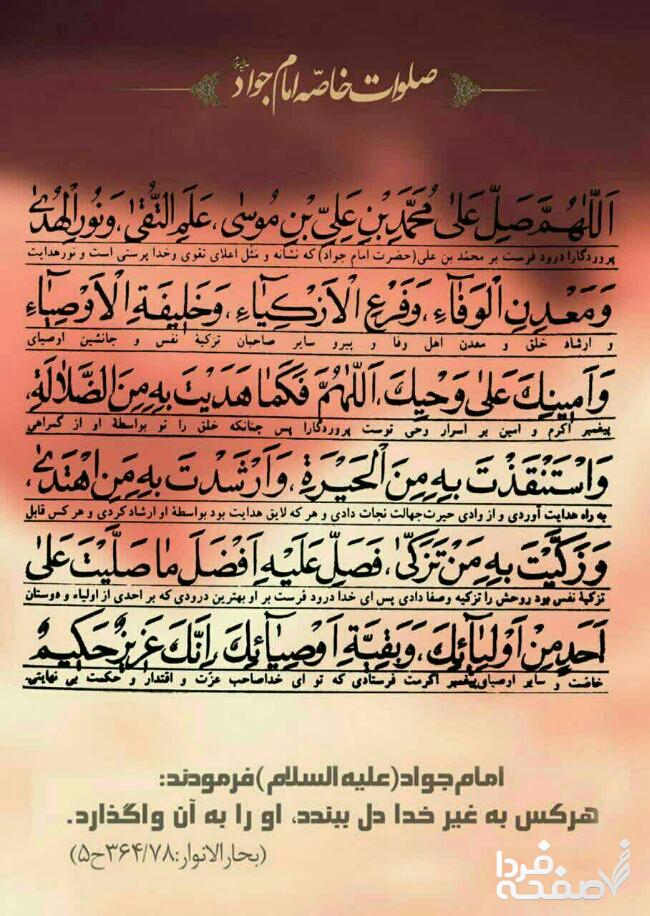 صلوات خاصّه امام جواد
اَللّٰهُمَّ صَلِّ عَلىٰ مُحَمَّدِ بْنِ عَلِىِّ بْنِ مُوسىٰ، عَلَمِ التُّقىٰ، وَ نُورِ الْهُدىٰ
پروردگارا درود فرست بر محمّد بن علی (حضرت امام جواد) که نشانه و مثل اعلای تقوی و خدا پرستی است و نور هدایت
وَ مَعْدِنِ الْوَفٰاءِ، وَ فَرْعِ الْاَزْكِيٰاءِ، وَ خَليفَةِ الْاَوْصِيٰاءِ
و ارشاد خلق و معدن اهل وفا و پیرو سایر صاحبان تزکیهٔ نفس و جانشین اوصیای
وَ اَمينِكَ عَلىٰ وَحْيِكَ، اَللّٰهُمَّ فَكَمٰا هَدَيْتَ بِهِ مِنَ الضَّلٰالَةِ،
پیغمبر اکرم و امین بر اسرار وحی توست پروردگارا پس چنانکه خلق را تو بواسطهٔ او از گمراهی
وَ اسْتَنْقَذْتَ بِهِ مِنَ الْحَيْرَةِ، وَ اَرْشَدْتَ بِهِ مَنِ اهْتَدىٰ،
به راه هدایت آوردی و از وادی حیرت جهالت نجات دادی و هر که لایق هدایت بود بواسطهٔ او ارشاد کردی و هر کس قابل
وَ زَكَّيْتَ بِهِ مَنْ تَزَكّىٰ، فَصَلِّ عَلَيْهِ اَفْضَلَ مٰا صَلَّيْتَ عَلىٰ
تزکیهٔ نفس بود روحش را تزکیه و صفا دادی پس ای خدا درود فرست بر او بهترین درودی که بر احدی از اولیاء و دوستان
اَحَدٍ مِنْ اَوْلِيٰائِكَ، وَ بَقِيَّةِ اَوْصِيٰائِكَ، اِنَّكَ عَزيزٌ حَكيمٌ
خاصّت و سایر اوصیای پیغمبر اکرمت فرستادی که تو ای خدا صاحب عزت و اقتدار و حکمت بی نهایتی.
امام جواد (علیه السلام) فرمودند:
هرکس به غیر خدا دل ببندد، او را به آن واگذارد.
(بحارالانوار: ۳۶۴/۷۸ح۵)
صفحه فردا